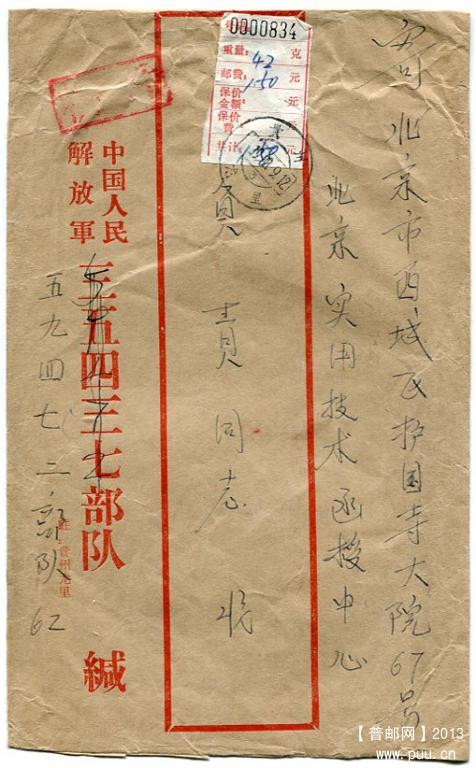 寄北京市西城区护国寺大院67号
北京实用技术函授中心
负责同志 收
0000834
重量: 42 克
邮费: 1.50 元
保价金额 元
保价费 元
共计: 1.50 元
中国人民
解放軍
三五四三七部队 缄
五九四七二部队
62
驻:贵州凯里
【普邮网】2013
www.puu.cn